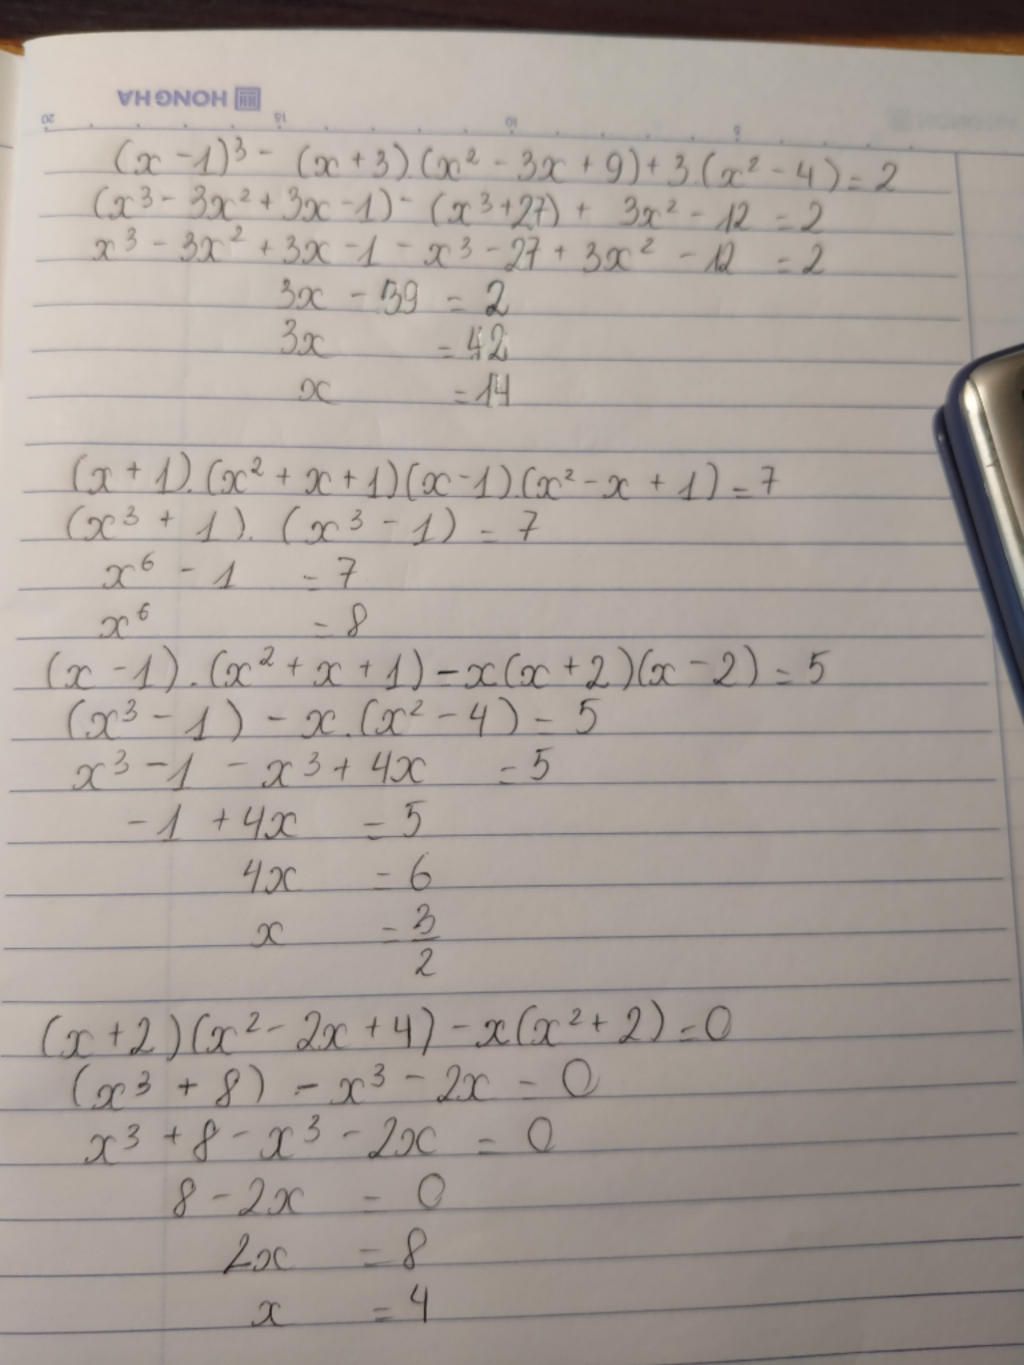 HONG HA
20 15 10 5
(x - 1)³ - (x + 3).(x² - 3x + 9) + 3.(x² - 4) = 2
(x³ - 3x² + 3x - 1) - (x³ + 27) + 3x² - 12 = 2
x³ - 3x² + 3x - 1 - x³ - 27 + 3x² - 12 = 2
3x - 39 = 2
3x = 42
x = 14
(x + 1).(x² + x + 1)(x - 1).(x² - x + 1) = 7
(x³ + 1).(x³ - 1) = 7
x⁶ - 1 = 7
x⁶ = 8
(x - 1).(x² + x + 1) - x(x + 2)(x - 2) = 5
(x³ - 1) - x.(x² - 4) = 5
x³ - 1 - x³ + 4x = 5
-1 + 4x = 5
4x = 6
x = 3/2
(x + 2)(x² - 2x + 4) - x(x² + 2) = 0
(x³ + 8) - x³ - 2x = 0
x³ + 8 - x³ - 2x = 0
8 - 2x = 0
2x = 8
x = 4